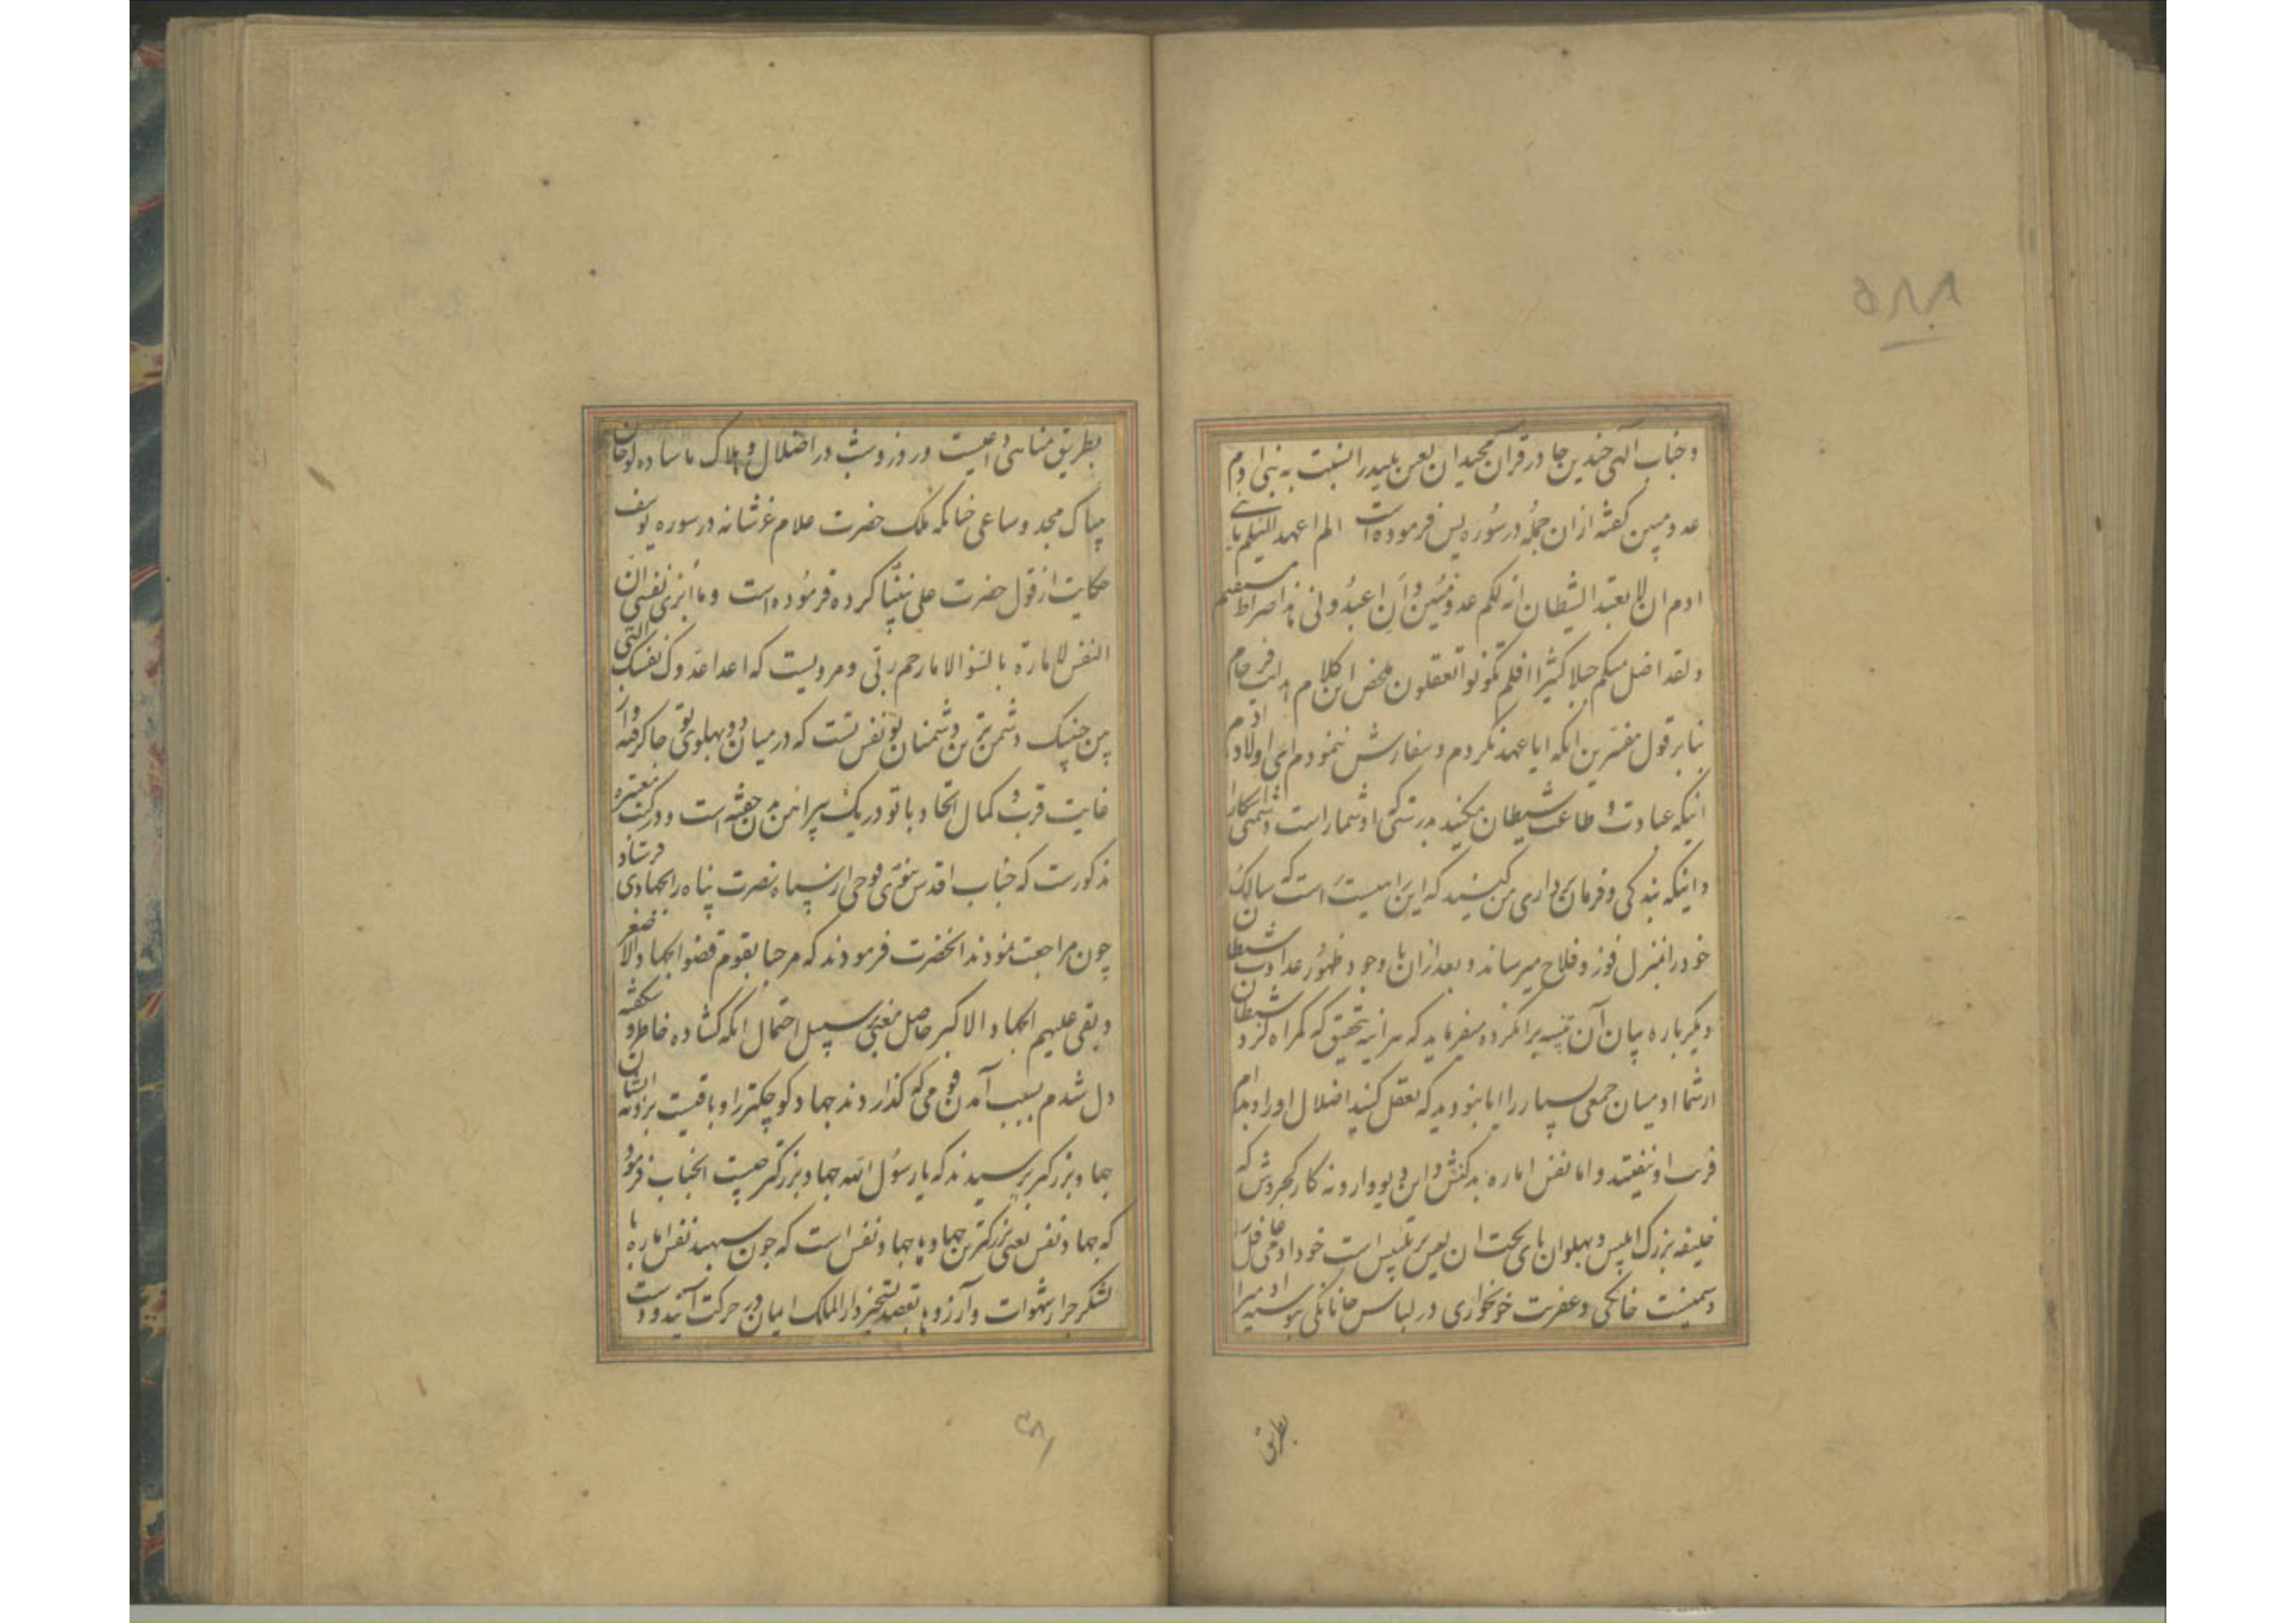 ۵۸۸
و جناب الهی چندین جا در قرآن مجید ان لعین پلید را نسبت به بنی ادم
عدو مبین گفته ازان جمله در سوره یس فرموده است الم اعهد الیکم یا بنی
ادم ان لا تعبدوا الشیطان انه لکم عدو مبین و ان اعبدونی هذا صراط مستقیم
و لقد اضل منکم جبلا کثیرا افلم تکونوا تعقلون ملخص این کلام فرجام
بنا بر قول مفسرین انکه ایا عهد نکردم و سفارش ننمودم ای اولاد ادم
اینکه عبادت و طاعت شیطان مکنید بدرستی که او شما راست دشمنی اشکارا
و اینکه بندگی و فرمان برداری من کنید که این راهیست راست که سالک
خود را بمنزل فوز و فلاح میرساند و بعد ازان با وجود ظهور عداوت شیطان
دیگر باره بیان آن میفرماید که هراینه بتحقیق که گمراه کرد شیطان
از شما ادمیان جمعی بسیار را ایا نبودید که تعقل کنید اضلال او را و بدام
فریب او نیفتید و اما نفس اماره بدکنش و این دیو وارونه کار کجروش که
خلیفه بزرگ ابلیس و پهلوان پای تخت ان لعین پر تلبیس است خود ادمی غافل
دشمنیست خانگی و عفریت خونخواری در لباس جانانگی پیوسته او میرا
بطریق
بطریق مناسئ داعیست و روز و شب در اضلال و هلاک ما ساده لوحان
بیباک مجد و ساعی چنانکه ملک حضرت علام عز شانه در سوره یوسف
حکایت از قول حضرت علی نبینا کرده فرموده است و ما ابرئ نفسی ان
النفس لامارة بالسوء الا ما رحم ربی و مرویست که اعدا عدوک نفسک التی
بین جنبیک دشمن ترین دشمنان تو نفس تست که در میان دو پهلوی تو جا گرفته و از
غایت قرب و کمال اتحاد با تو در یک پیراهن بدن خفته است و در کتب معتبره
مذکورست که جناب اقدس نبوی فوجی از سپاه نصرت پناه را بجهادی فرستاد
چون مراجعت نمودند انحضرت فرمودند که مرحبا بقوم قضوا الجهاد الاصغر
و بقی علیهم الجهاد الاکبر حاصل معنی بر سبیل احتمال انکه گشاده خاطر و شکفته
دل شدم بسبب آمدن قومی که گذاردند جهاد کوچکتر را و باقیست بر ذمه ایشان
جهاد بزرگتر پرسیدند که یا رسول الله جهاد بزرگتر چیست انجناب فرمود
که جهاد نفس یعنی بزرگترین جهادها جهاد نفس است که چون سپهبد نفس اماره با
لشکر جرار شهوات و آرزوها بقصد تسخیر دار الملک ایمان در حرکت آیند و دست
۳۸۱